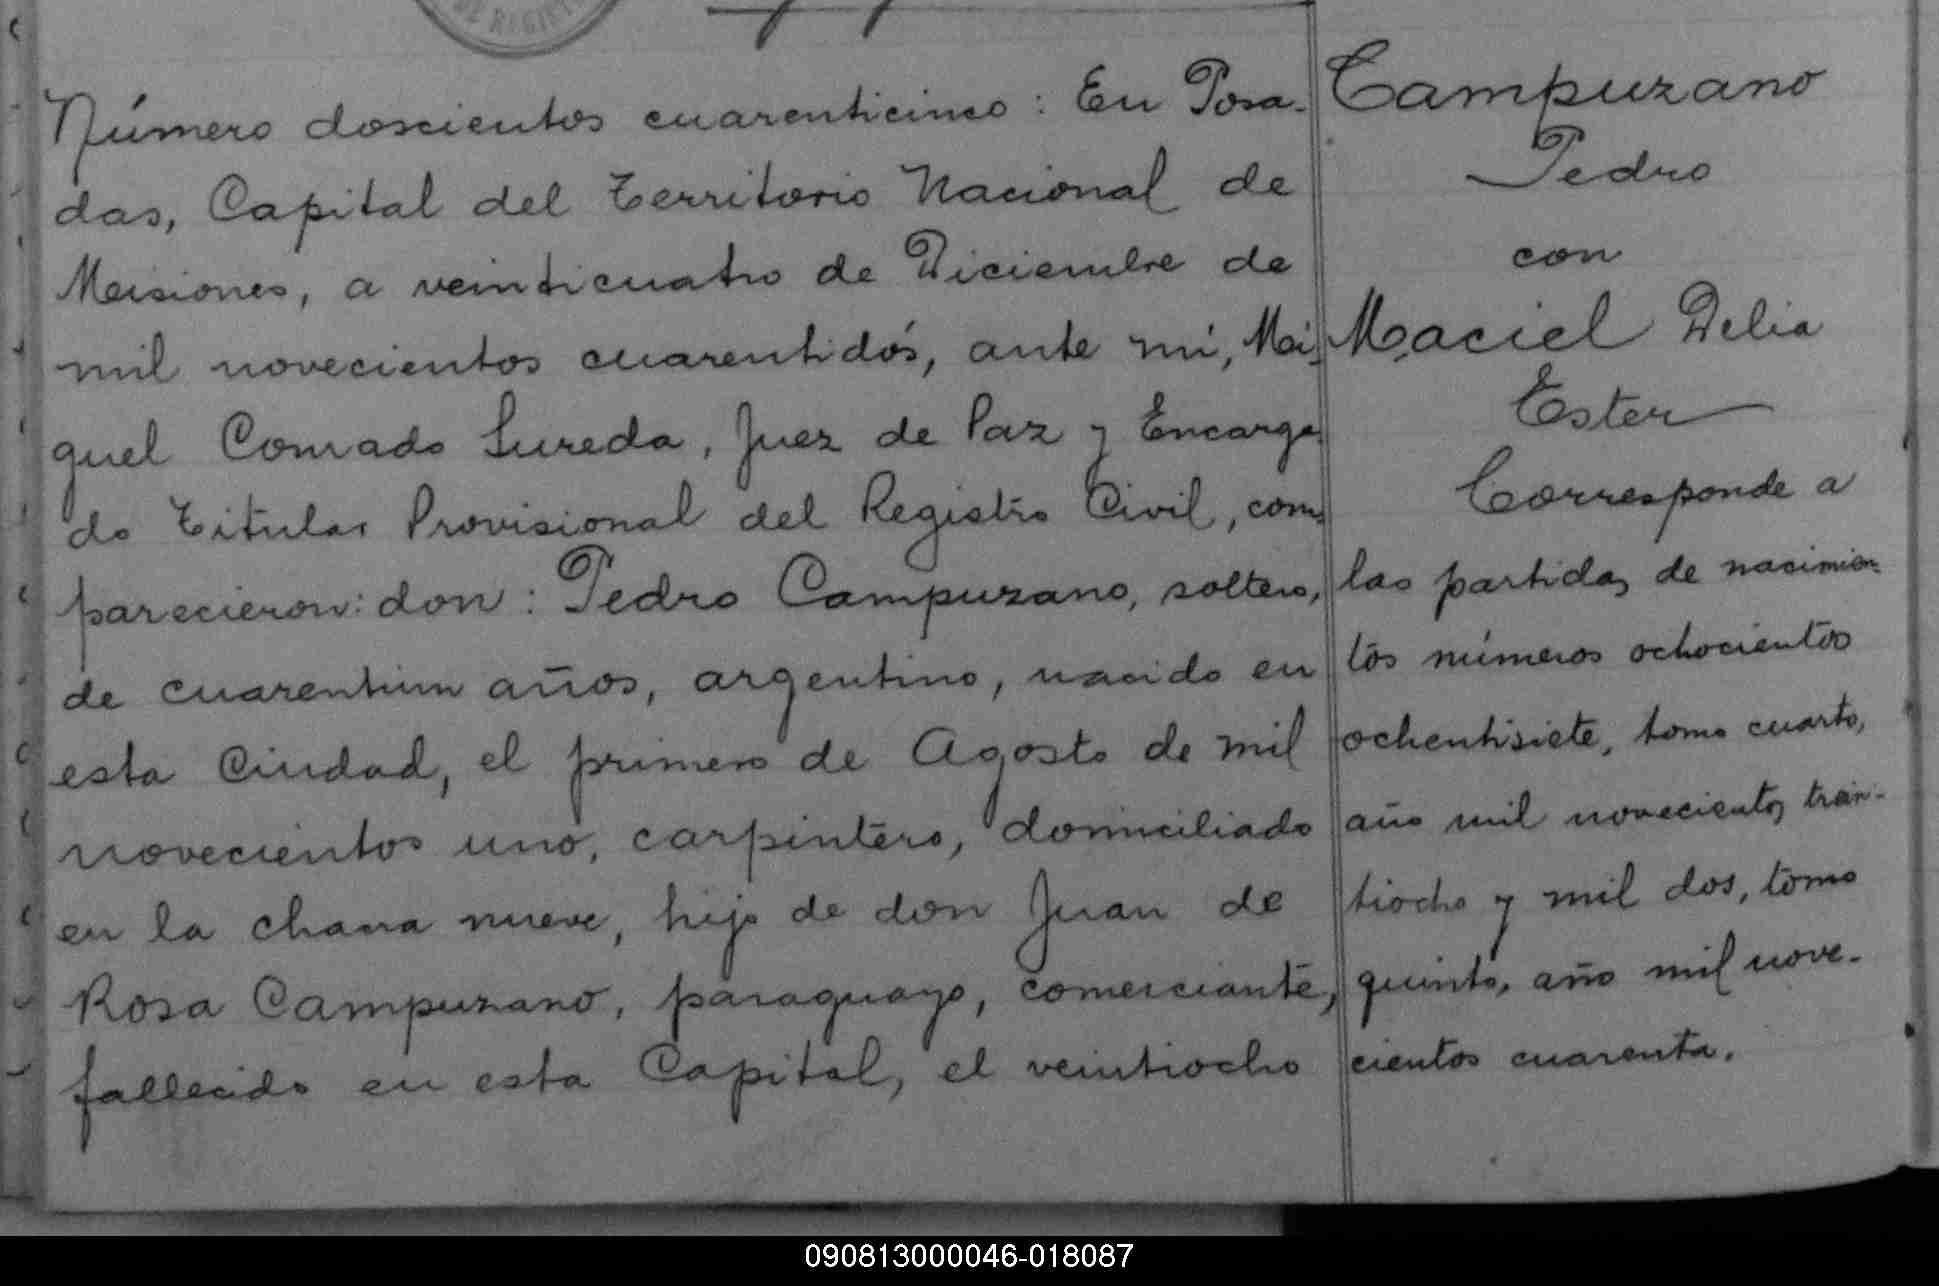 DE REGIST
Número doscientos cuarenticinco: En Posa-
das, Capital del Territorio Nacional de
Misiones, a veinticuatro de Diciembre de
mil novecientos cuarentidós, ante mí, Mi-
guel Conrado Sureda, Juez de Paz y Encarga-
do Titular Provisional del Registro Civil, com-
parecieron: don: Pedro Campuzano, soltero,
de cuarentiun años, argentino, nacido en
esta Ciudad, el primero de Agosto de mil
novecientos uno, carpintero, domiciliado
en la chacra nueve, hijo de don Juan de
Rosa Campuzano, paraguayo, comerciante,
fallecido en esta Capital, el veintiocho
Campuzano
Pedro
con
Maciel Delia
Ester
Corresponde a
las partidas de nacimien-
tos números ochocientos
ochentisiete, tomo cuarto,
año mil novecientos trein-
tiocho y mil dos, tomo
quinto, año mil nove-
cientos cuarenta.
090813000046-018087